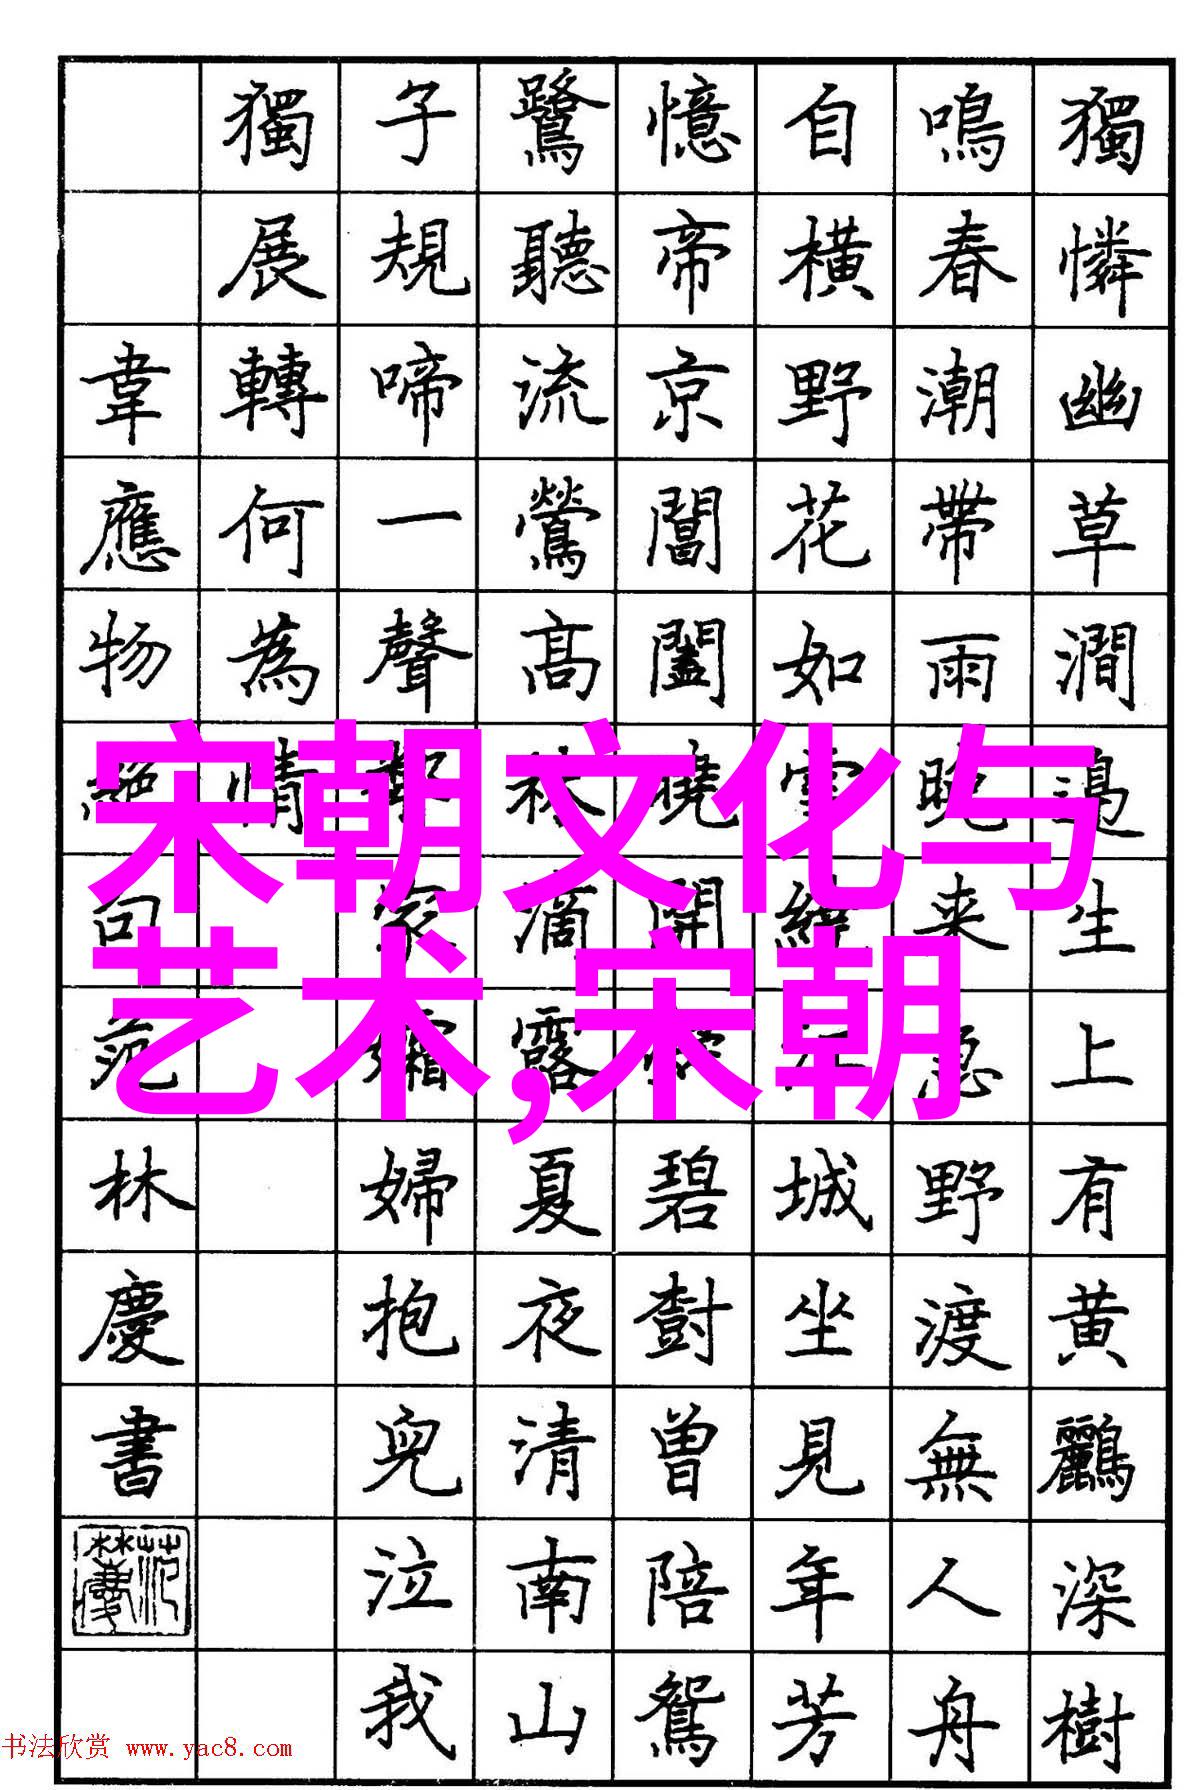 獨憐幽草澗邊生上有黄鸝深樹
鳴春潮帶雨晚来急野渡無人舟
自橫野花如雪繞城坐見年芳
憶帝京閶闔曉開碧樹曾陪鴛
鷺聽流鶯高林滴露夏夜清南山
子規啼一聲鄰家孀婦抱兒泣我
獨展轉何為情
韋應物絕句范林慶書
宋朝文化与
艺术,宋朝
书法欣赏 www.yac8.com